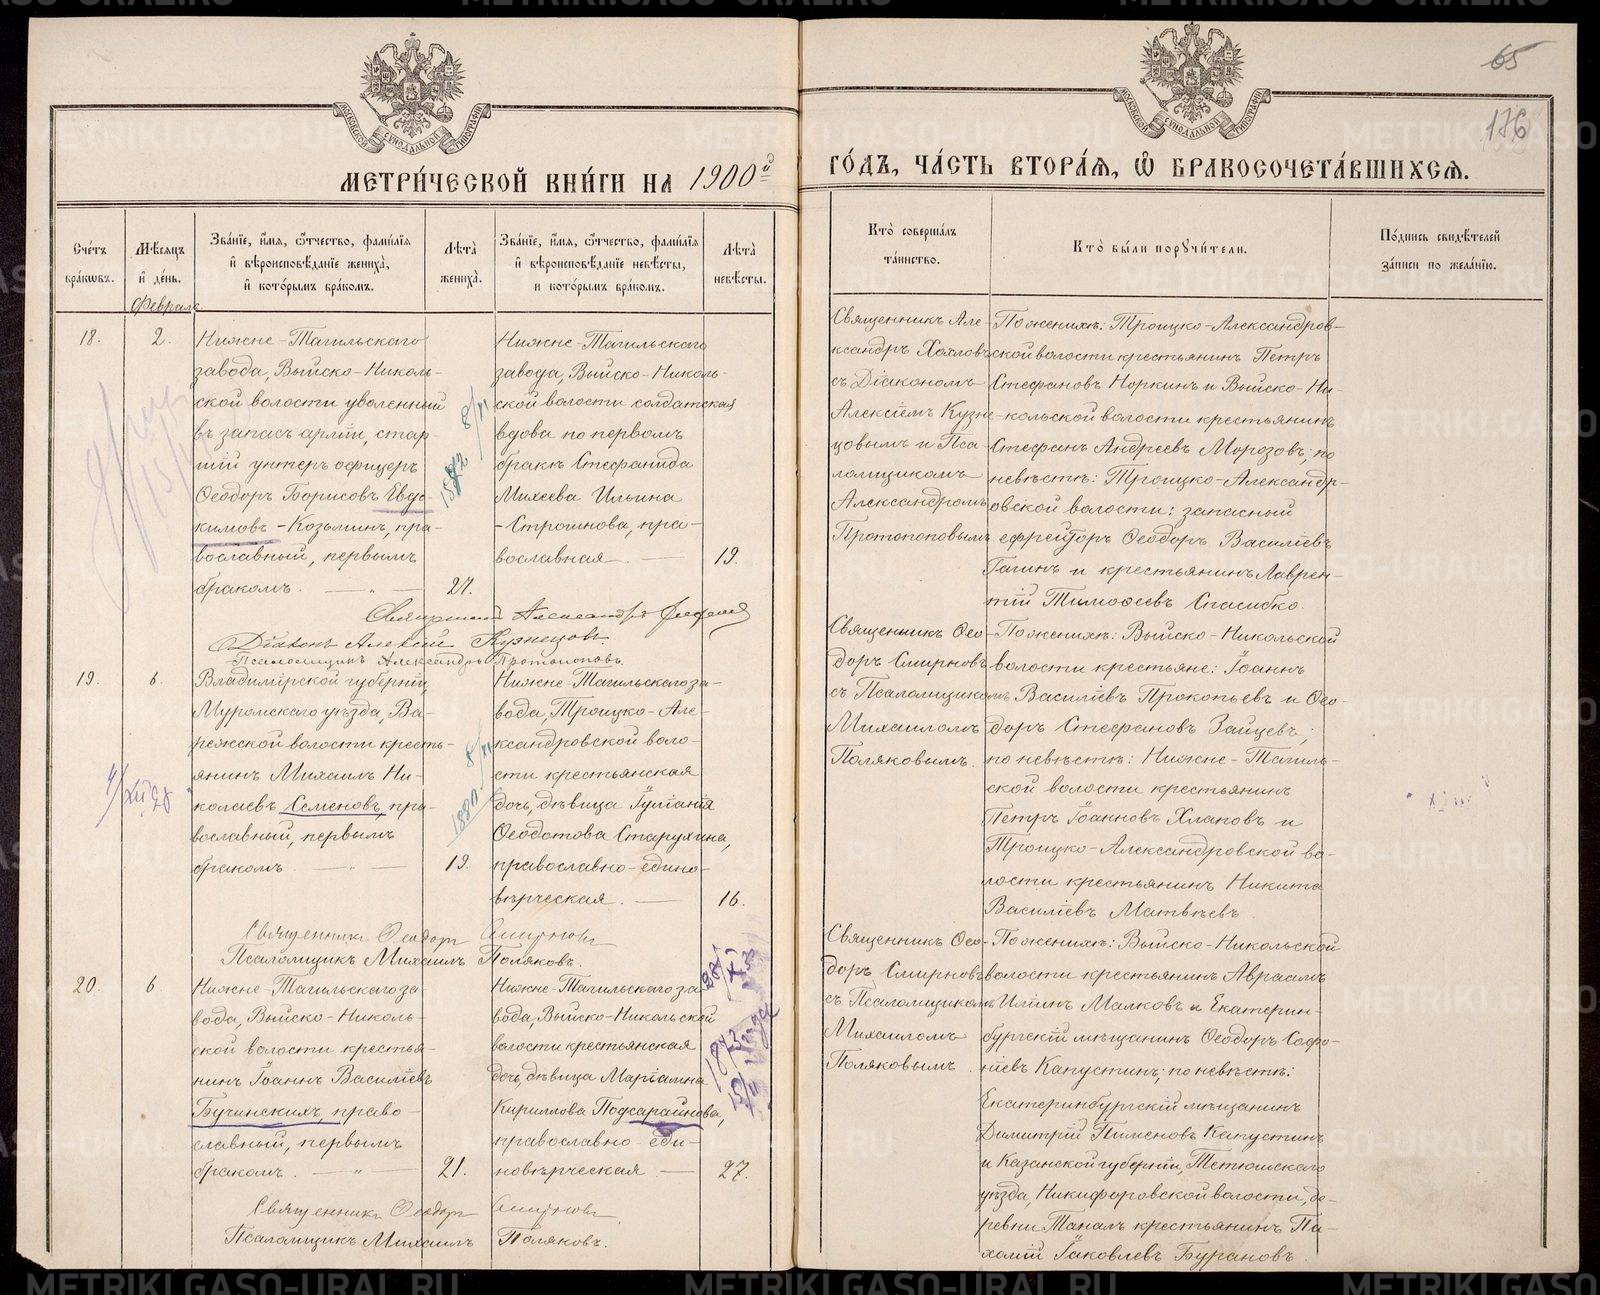 65
176
МЕТРИ́ЧЕСКОЙ КНИ́ГИ НА 1900й
ГО́ДЪ, ЧА́СТЬ ВТОРА́Я, Ѡ БРАКОСОЧЕТА́ВШИХСЯ.
Сче́тъ бра́кѡвъ.
Мѣ́сяцъ и҆ де́нь.
Зва́ніе, и҆́мя, ѻ҆́тчество, фами́лія
и҆ вѣроисповѣ́даніе жениха̀,
и҆ кото́рымъ бра́комъ.
Лѣ́та̀ жениха̀.
Зва́ніе, и҆́мя, ѻ҆́тчество, фами́лія
и҆ вѣроисповѣ́даніе невѣ́сты,
и кото́рымъ бра́комъ.
Лѣ́та̀ невѣ́сты.
Кто̀ соверша́лъ
та́инство.
Кто̀ бы́ли порꙋчи́тели.
По́дпись свидѣ́телей
за́писи по жела́нію.
Февраль
18.
2.
Нижне-Тагильскаго
завода, Выйско-Николь-
ской волости уволенный
въ запасъ арміи, стар-
шій унтеръ офицеръ
Ѳеодоръ Борисовъ Евдо-
кимовъ-Козьминъ, пра-
вославный, первымъ
бракомъ.
24.
Нижне-Тагильскаго
завода, Выйско-Николь-
ской волости солдатская
вдова по первомъ
бракѣ Стефанида
Михеева Ильина
-Строинова, пра-
вославная
19.
Священникъ Але-
ксандръ Хохловъ
съ Діакономъ
Алексіемъ Кузне-
цовымъ и Пса-
ломщикомъ
Александромъ
Протопоповымъ
По женихѣ: Троицко-Александров-
ской волости крестьянинъ Петръ
Стефановъ Норкинъ и Выйско-Ни-
кольской волости крестьянинъ
Стефанъ Андреевъ Морозовъ; по
невѣстѣ: Троицко-Александр-
овской волости: запасный
ефрейторъ Ѳеодоръ Василіевъ
Гагинъ и крестьянинъ Лаврен-
тій Тимоѳеевъ Спасибко.
Священникъ Александръ
Діаконъ Алексій Кузнецовъ
Псаломщикъ Александръ Протопоповъ.
1872 8/XI
19.
6.
Владимірской губерніи,
Муромскаго уѣзда, Ва-
режской волости кресть-
янинъ Михаилъ Ни-
колаевъ Семеновъ, пра-
вославный, первымъ
бракомъ.
19.
Нижне-Тагильскаго за-
вода, Троицко-Але-
ксандровской воло-
сти крестьянская
дочь, дѣвица Іуліанія
Ѳеодотова Старухина,
православно-едино-
вѣрческая.
16.
Священникъ Ѳео-
доръ Смирновъ
съ Псаломщикомъ
Михаиломъ
Поляковымъ.
По женихѣ: Выйско-Никольской
волости крестьяне: Іоаннъ
Василіевъ Прокопьевъ и Ѳео-
доръ Стефановъ Зайцевъ;
по невѣстѣ: Нижне-Тагиль-
ской волости крестьянинъ
Петръ Іоанновъ Хлаповъ и
Троицко-Александровской во-
лости крестьянинъ Никита
Василіевъ Матвѣевъ.
Священникъ Ѳеодоръ Смирновъ
Псаломщикъ Михаилъ Поляковъ.
1880 8/XI
20.
6.
Нижне-Тагильскаго за-
вода, Выйско-Николь-
ской волости крестья-
нинъ Іоаннъ Василіевъ
Бучинскихъ, право-
славный, первымъ
бракомъ.
21.
Нижне-Тагильскаго за
вода, Выйско-Никольской
волости крестьянская
дочь, дѣвица Маріамна
Кириллова Подсарайнова,
православно-еди-
новѣрческая
27.
Священникъ Ѳео-
доръ Смирновъ
съ Псаломщикомъ
Михаиломъ
Поляковымъ.
По женихѣ: Выйско-Никольской
волости крестьянинъ Авраамъ
Иліинъ Малковъ и Екатерин-
бургскій мѣщанинъ Ѳеодоръ Софро-
ніевъ Капустинъ; по невѣстѣ:
Екатеринбургскій мѣщанинъ
Димитрій Пименовъ Капустинъ
и Казанской губерніи, Тетюшскаго
уѣзда, Никифоровской волости, де-
ревни Таналъ крестьянинъ Па-
хомій Іаковлевъ Бурановъ.
Священникъ Ѳеодоръ Смирновъ
Псаломщикъ Михаилъ Поляковъ.
METRIKI.GASO-URAL.RU